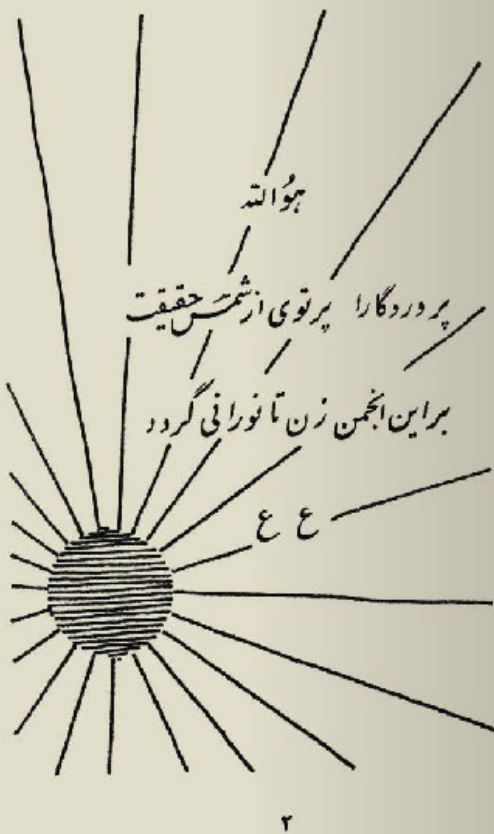 هُوَالله
پروردگارا پرتوی از شمس حقیقت
بر این انجمن زن تا نورانی گردد
ع ع
۲